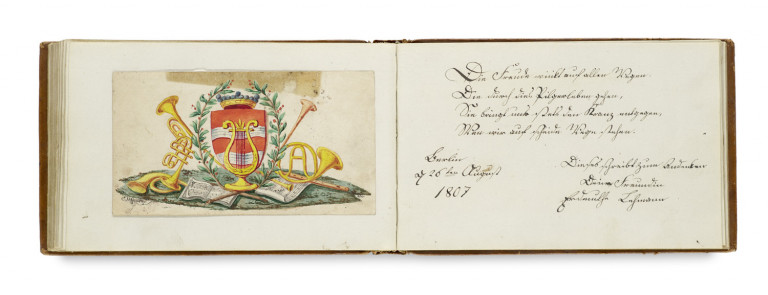 Die Freude winkt auf allen Wegen
Die durch dies Pilgerleben gehen,
Sie bringt uns stets den Kranz entgegen,
Wan wir auf scheide Wege stehen.
Berlin
d 26ten August
1807
Dieses schreibt zum Andenken
Deine Freundin
Erdmuthe Lehmann